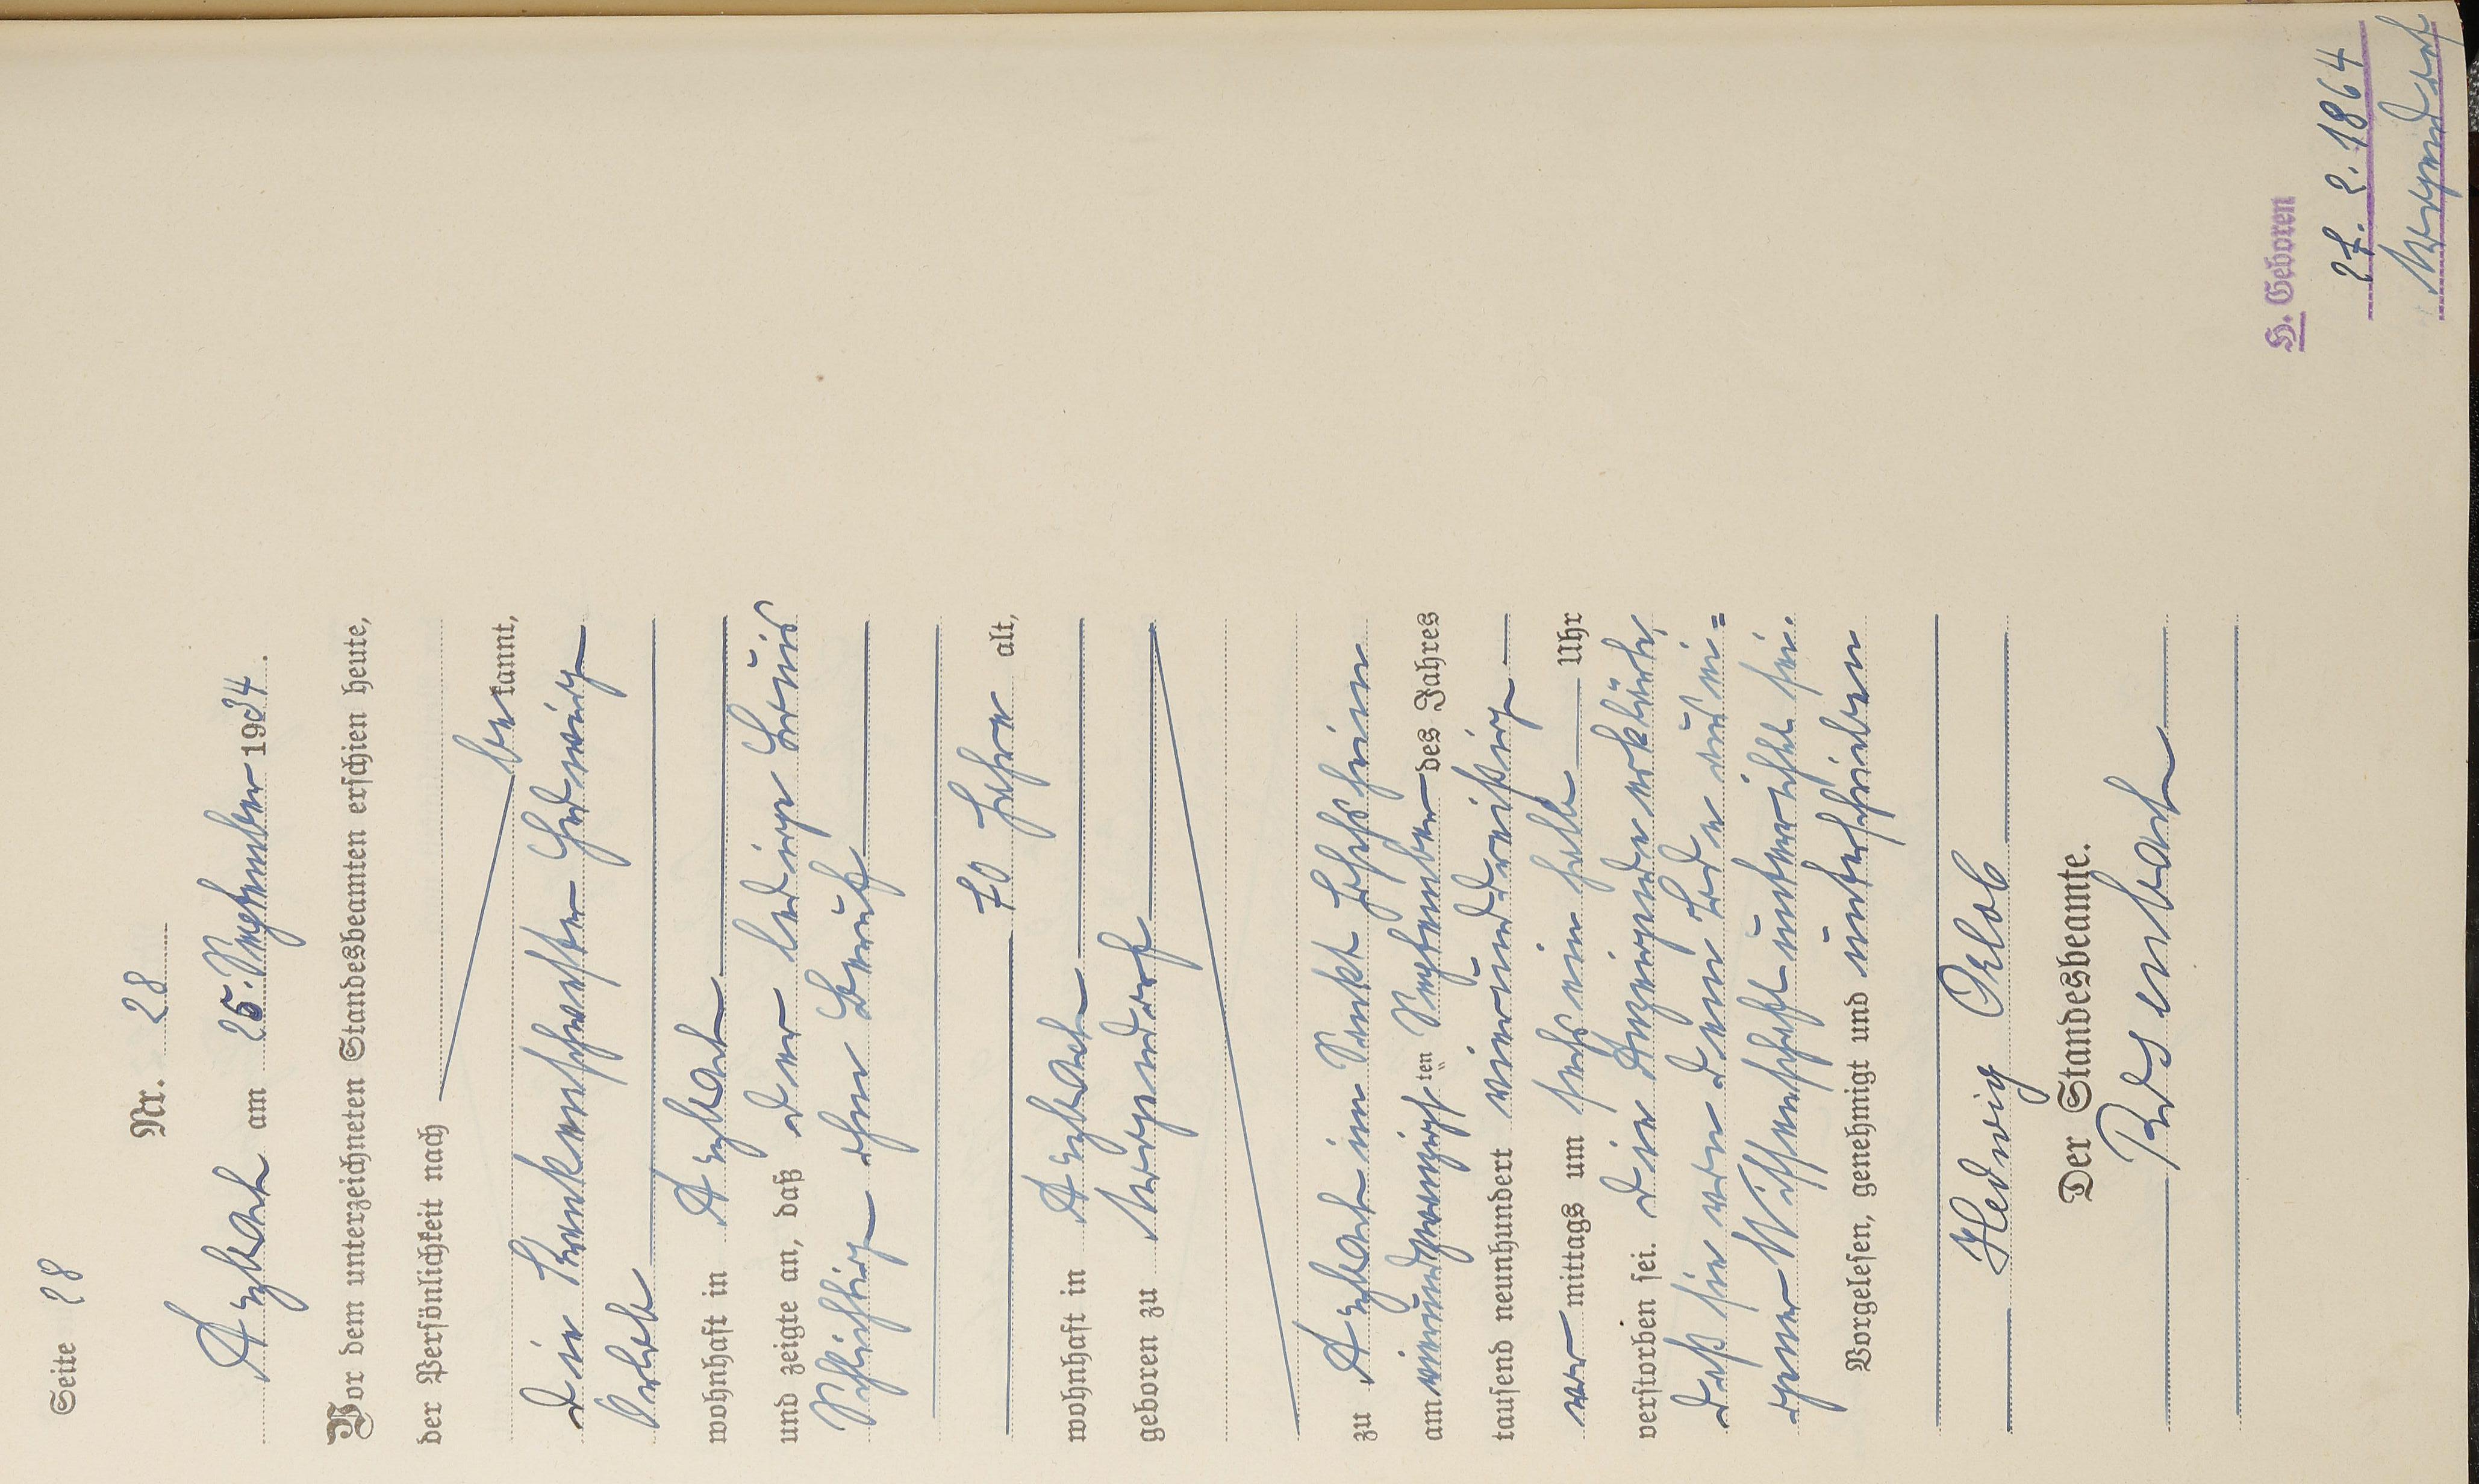 Seite 28
Nr. 28
Asbach am 25. September 1934.
Vor dem unterzeichneten Standesbeamten erschien heute,
der Persönlichkeit nach
be kannt,
die Krankenschwester Hedwig
Orlob
wohnhaft in Asbach
und zeigte an, daß der ledige Louis
ohne Beruf
70 Jahre alt,
wohnhaft in Asbach
geboren zu
zu Asbach im Sankt Josefsheim
am vierundzwanzigsten September des Jahres
tausend neunhundert vierunddreißig
vor mittags um sechs ein halb Uhr
verstorben sei. Die Anzeigende erklärte,
daß sie von dem Tode aus ei=
gener Wissenschaft unterrichtet sei.
Vorgelesen, genehmigt und unterschrieben
Hedwig Orlob
Der Standesbeamte.
H. Geboren
27. 2. 1864